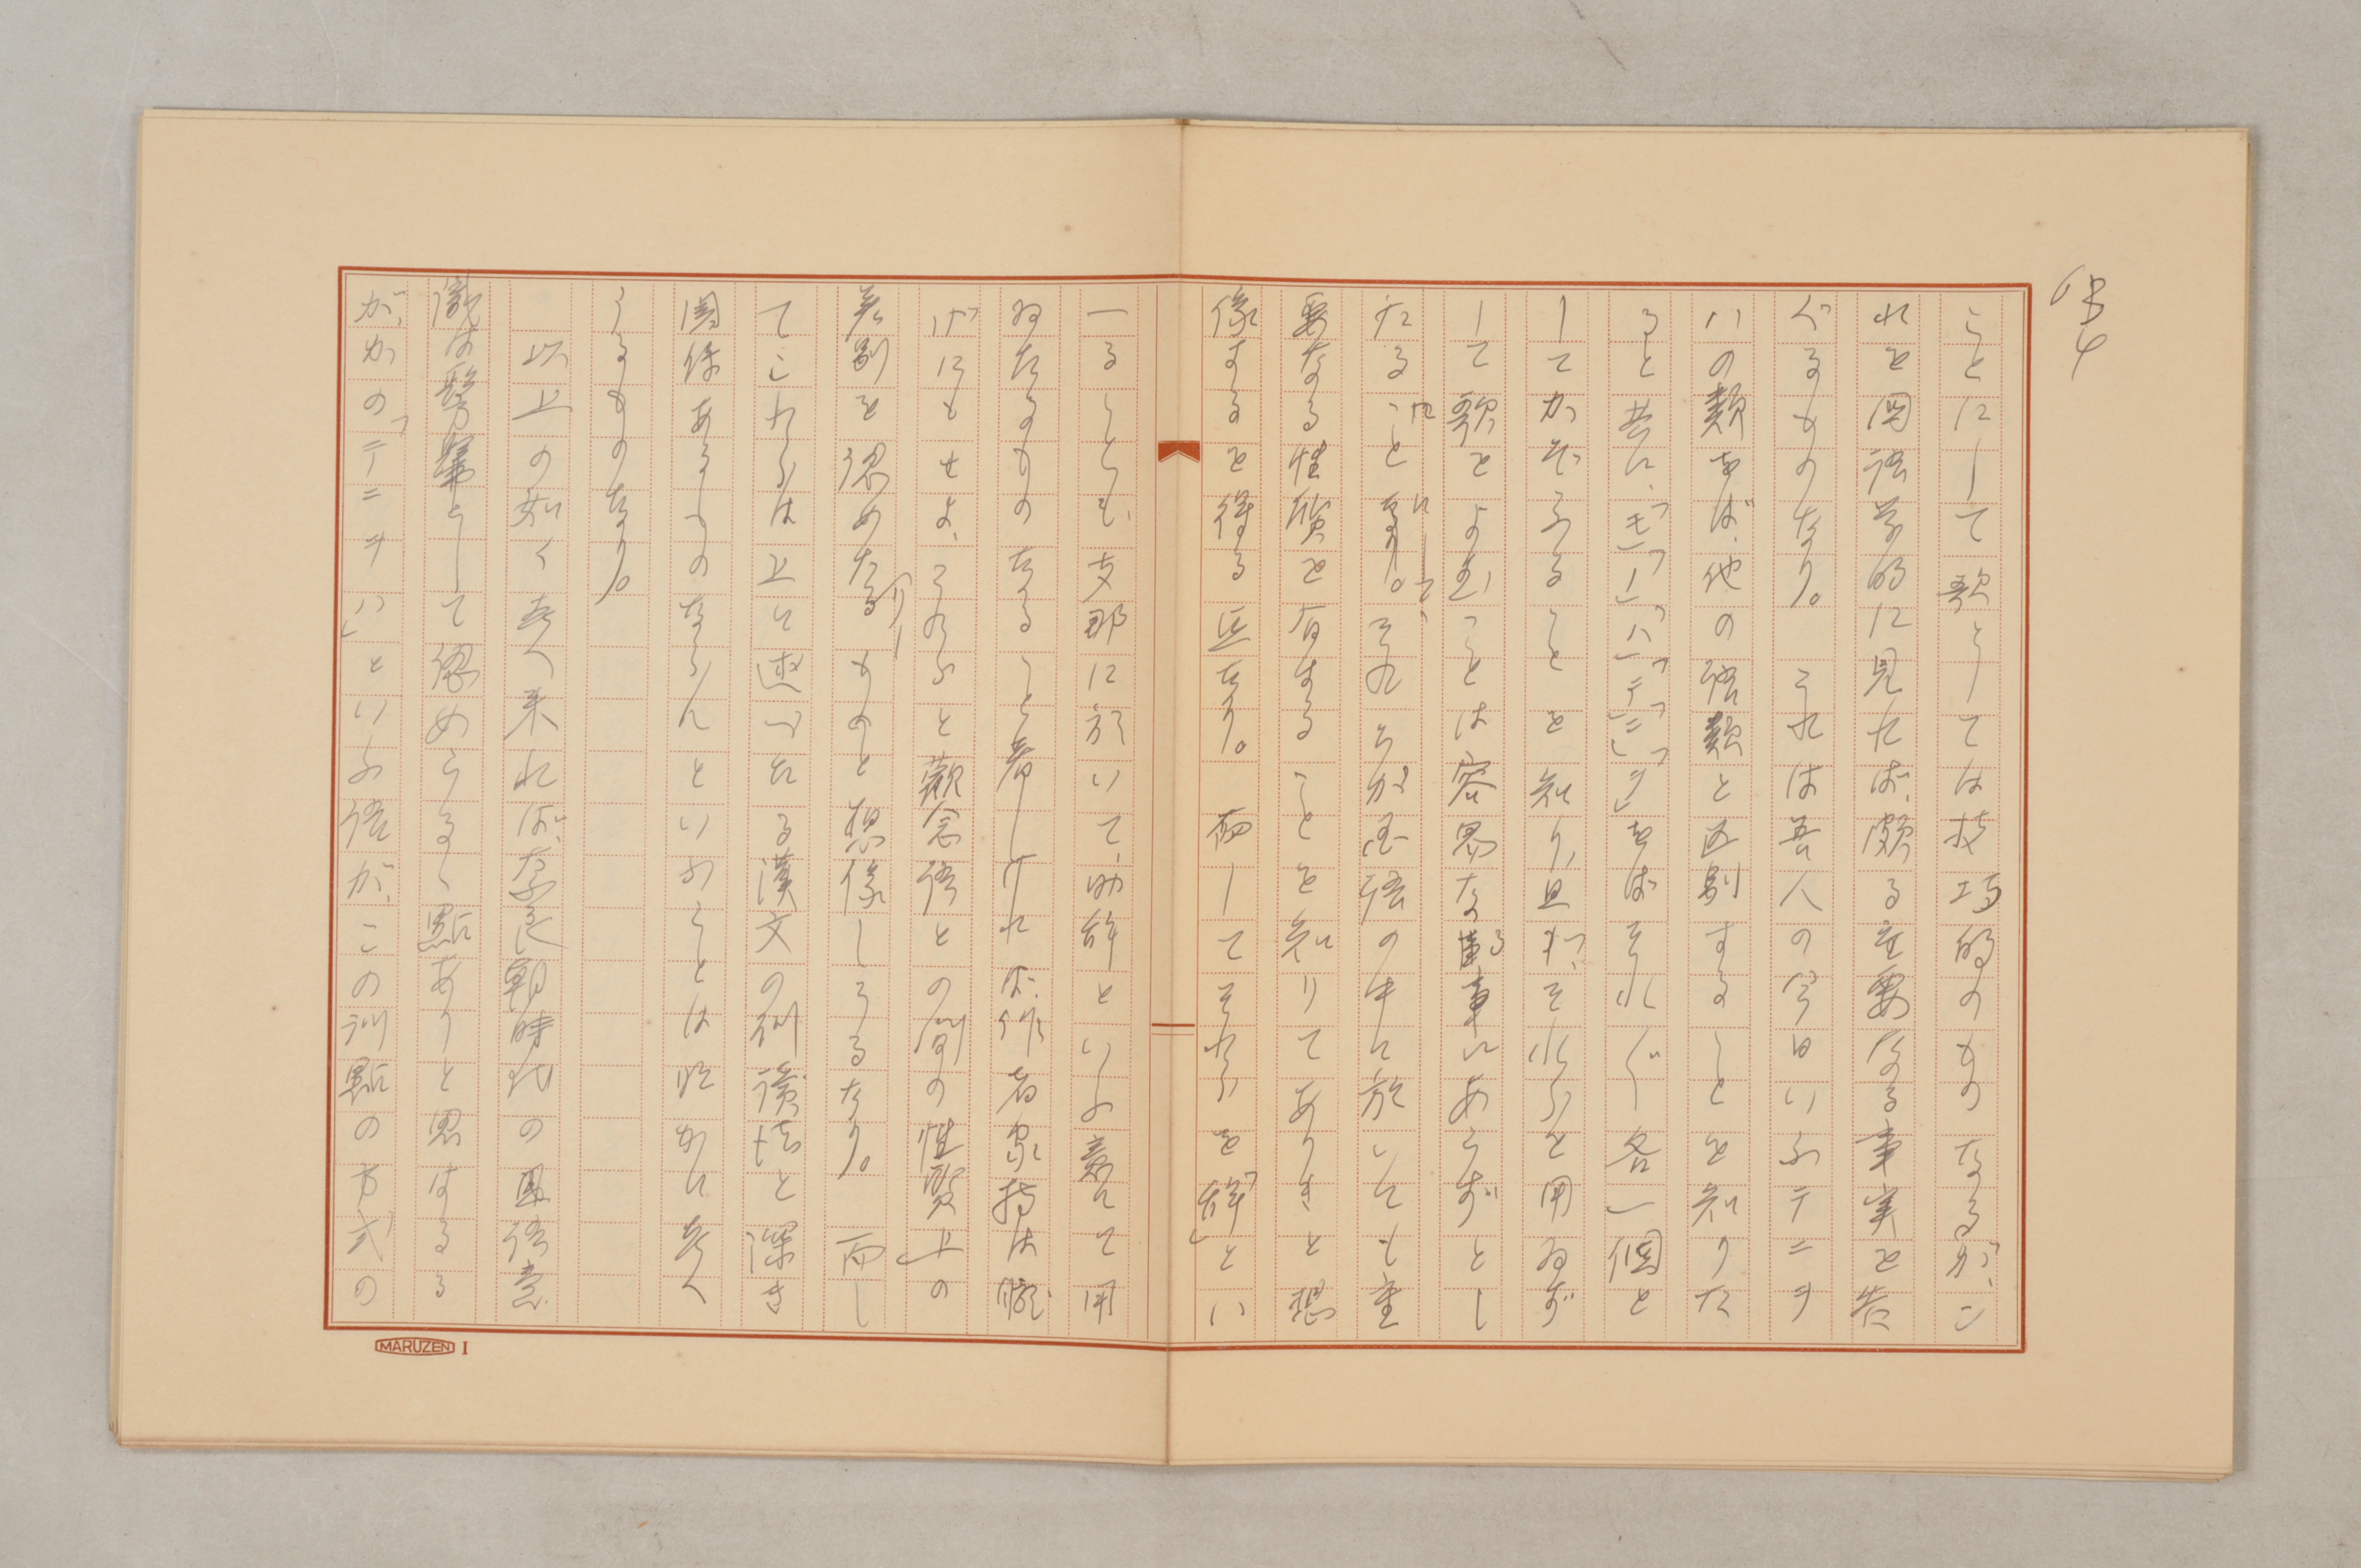 ことにして歌としては技巧的のものなるが、こ
れを国語学的に見れば、頗る重要なる事実を告
ぐるものなり。これは吾人の今日いふテニヲ
ハの類をば、他の語類と区別することを知りた
ると共に、「モ」「ノ」「ハ」「テ」「ニ」「ヲ」をばそれぐ各一個と
してかぞふることを知り、且つ、それらを用ゐず
して歌をよむことは容易なる事にあらずとし
たることにして、それらが国語の中に於いても重
要なる性質を有することを知りてありきと想
像するを得る也なり。而してそれらを「辞」とい
へることも、支那に於いて、助辞といふ義にて用
ゐたるものなること著しければ、作者家持は朧
げにもせよ、それらと観念語との間の性質上の
差別を認めたりしものと想像しうるなり。而し
てこれらは上に述べたる漢文の訓読法と深き
関係あるものならんといふことは明かに考へ
うるものなり。
以上の如く考へ来れば、奈良朝時代の国語意
識は緊密として認めらるゝ点ありと思はるる
が、かの「テニヲハ」といふ語が、この訓点の方式の
MARUZEN I